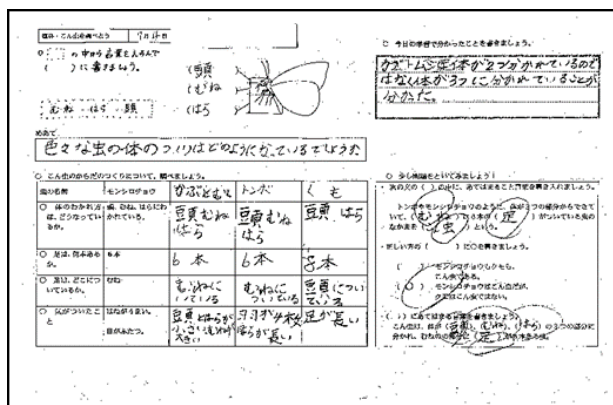 理科・こん虫を調べよう
○ の中から言葉をえらんで
( )に書きましょう。
むね はら 頭
(頭)
(むね)
(はら)
めあて
色々な虫の体のつくりはどのようになっているでしょうか
○ こん虫のからだのつくりについて、調べましょう。
虫の名前 モンシロチョウ かぶとむし トンボ くも
○ 体のわかれ方は、どうなっているか。 頭、むね、はらにわかれている。 頭むねはら 頭むねはら 頭 はら
○ 足は、何本あるか。 6本 6本 6本 8本
○ 足は、どこについているか。 むね むねについている むねについている 頭についている
○ 気がついたこと はねが4まい。
○ 今日の学習で分かったことを書きましょう。
カブトムシは体が2つに分かれているので
はなく体が3つに分かれていることが
分かった。
○ 少し問題をといてみましょう!
トンボやモンシロチョウのように、体が3つの部分からできて
いて、(むね)に6本の(足)がついている虫の
なかまを(こん虫)という。
・正しい方の( )に○を書きましょう。
( ) モンシロチョウもクモも、
こん虫である。
(○) モンシロチョウはこん虫だが、
クモはこん虫ではない。
( )にあてはまる言葉を書きましょう。
こん虫は、体が(頭)、(むね)、(はら)の3つの部分に